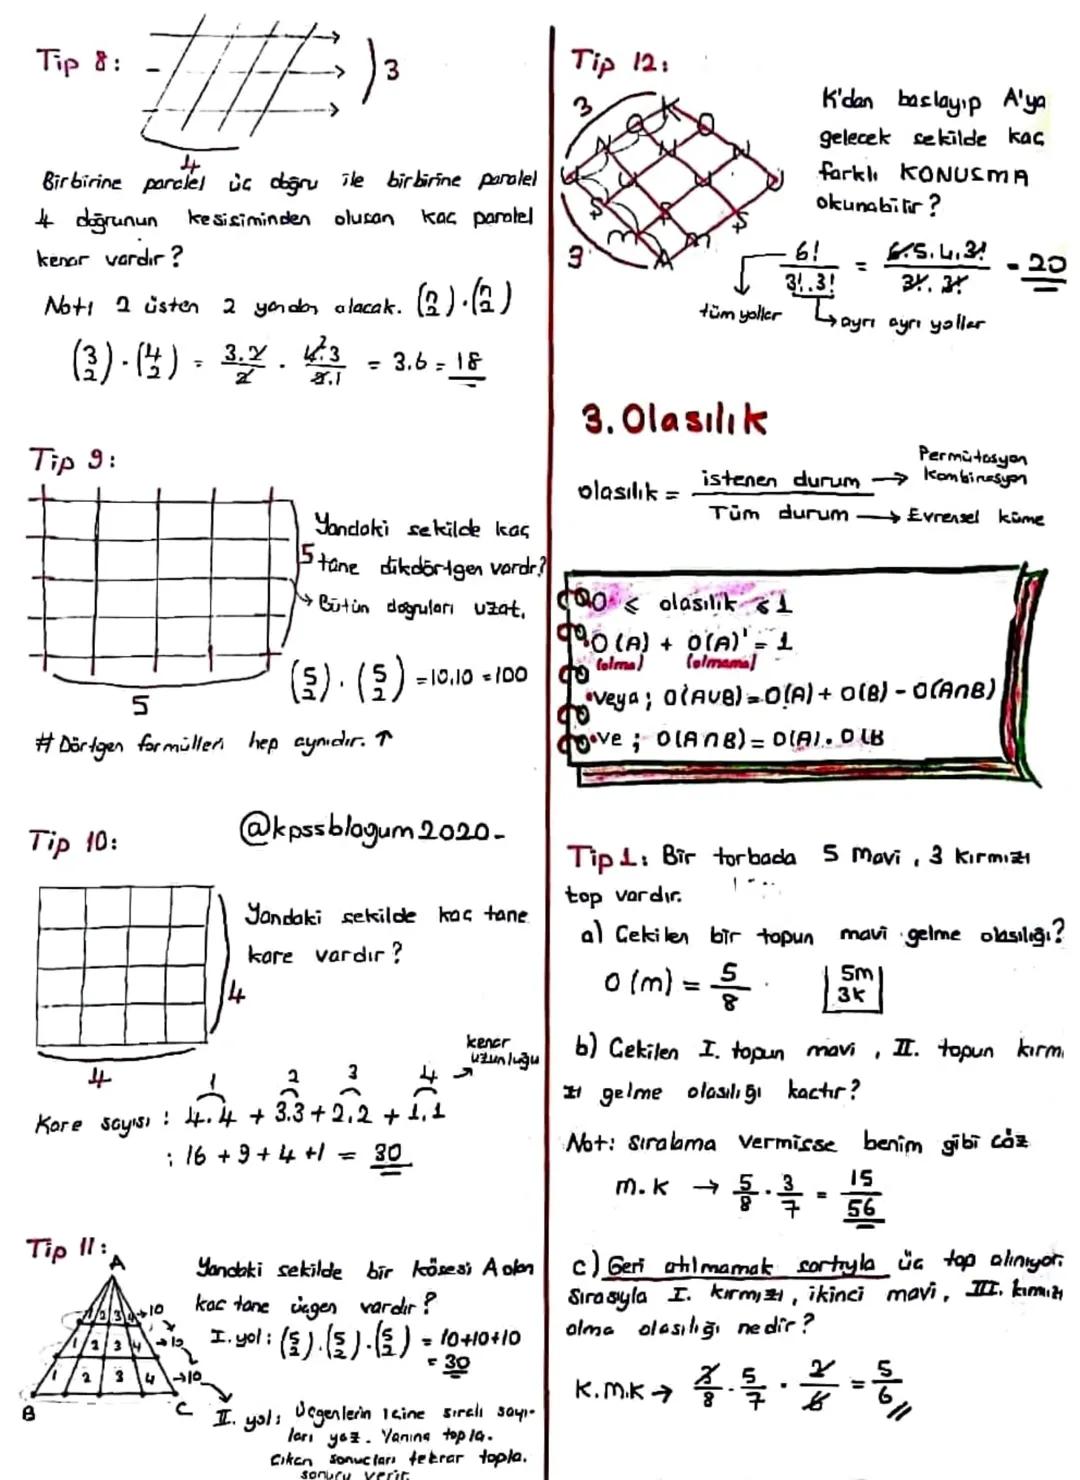 Tip 8:
3
4
Birbirine paralel üç doğru ile birbirine paralel
4 doğrunun kesişiminden oluşan kaç paralel
kenar vardır?
Not: 2 üsten 2 yandan alacak. (n 2).(n 2)
(3 2).(4 2) = 3.2/2 . 4.3/2.1 = 3.6 = 18
Tip 9:
Yandaki şekilde kaç
5 tane dikdörtgen vardır?
→ Bütün doğruları uzat.
(5 2).(5 2) = 10.10 = 100
5
# Dörtgen formülleri hep aynıdır. ↑
Tip 10:
@kpssblogum2020-
Yandaki şekilde kaç tane
kare vardır?
4
4
kenar
uzunluğu
1 2 3 4 →
Kare sayısı : 4.4 + 3.3 + 2.2 + 1.1
: 16 + 9 + 4 + 1 = 30
Tip 11:
A
Yandaki şekilde bir köşesi A olan
kaç tane üçgen vardır?
1 2 3 4 →10
1 2 3 4 →10
1 2 3 4 →10
B C
I. yol: (5 2).(5 2).(5 2) = 10+10+10
= 30
II. yol: Üçgenlerin içine sıralı sayı-
ları yaz. Yanına topla.
Çıkan sonuçları tekrar topla.
sonucu verir.
Tip 12:
3
K
O O
N N N
U U U U
Ş Ş Ş
M M
A
3
K'dan başlayıp A'ya
gelecek şekilde kaç
farklı KONUŞMA
okunabilir?
6!/3!.3! = 6.5.4.3!/3!.3! = 20
tüm yollar
→ ayrı ayrı yollar
3. Olasılık
olasılık = istenen durum → Permütasyon Kombinasyon
Tüm durum → Evrensel küme
0 ≤ olasılık ≤ 1
O(A) + O(A)' = 1
(olma) (olmama)
• veya ; O(A∪B) = O(A) + O(B) - O(A∩B)
• ve ; O(A∩B) = O(A). O(B
Tip 1: Bir torbada 5 Mavi, 3 kırmızı
top vardır.
a) Çekilen bir topun mavi gelme olasılığı?
O(m) = 5/8
5m
3k
b) Çekilen I. topun mavi, II. topun kırmı
zı gelme olasılığı kaçtır?
Not: Sıralama vermişse benim gibi çöz
m.k → 5/8 . 3/7 = 15/56
c) Geri atılmamak şartıyla üç top alınıyor.
Sırasıyla I. kırmızı, ikinci mavi, III. kırmızı
olma olasılığı nedir?
K.M.K → 3/8 . 5/7 . 2/6 = 5/6